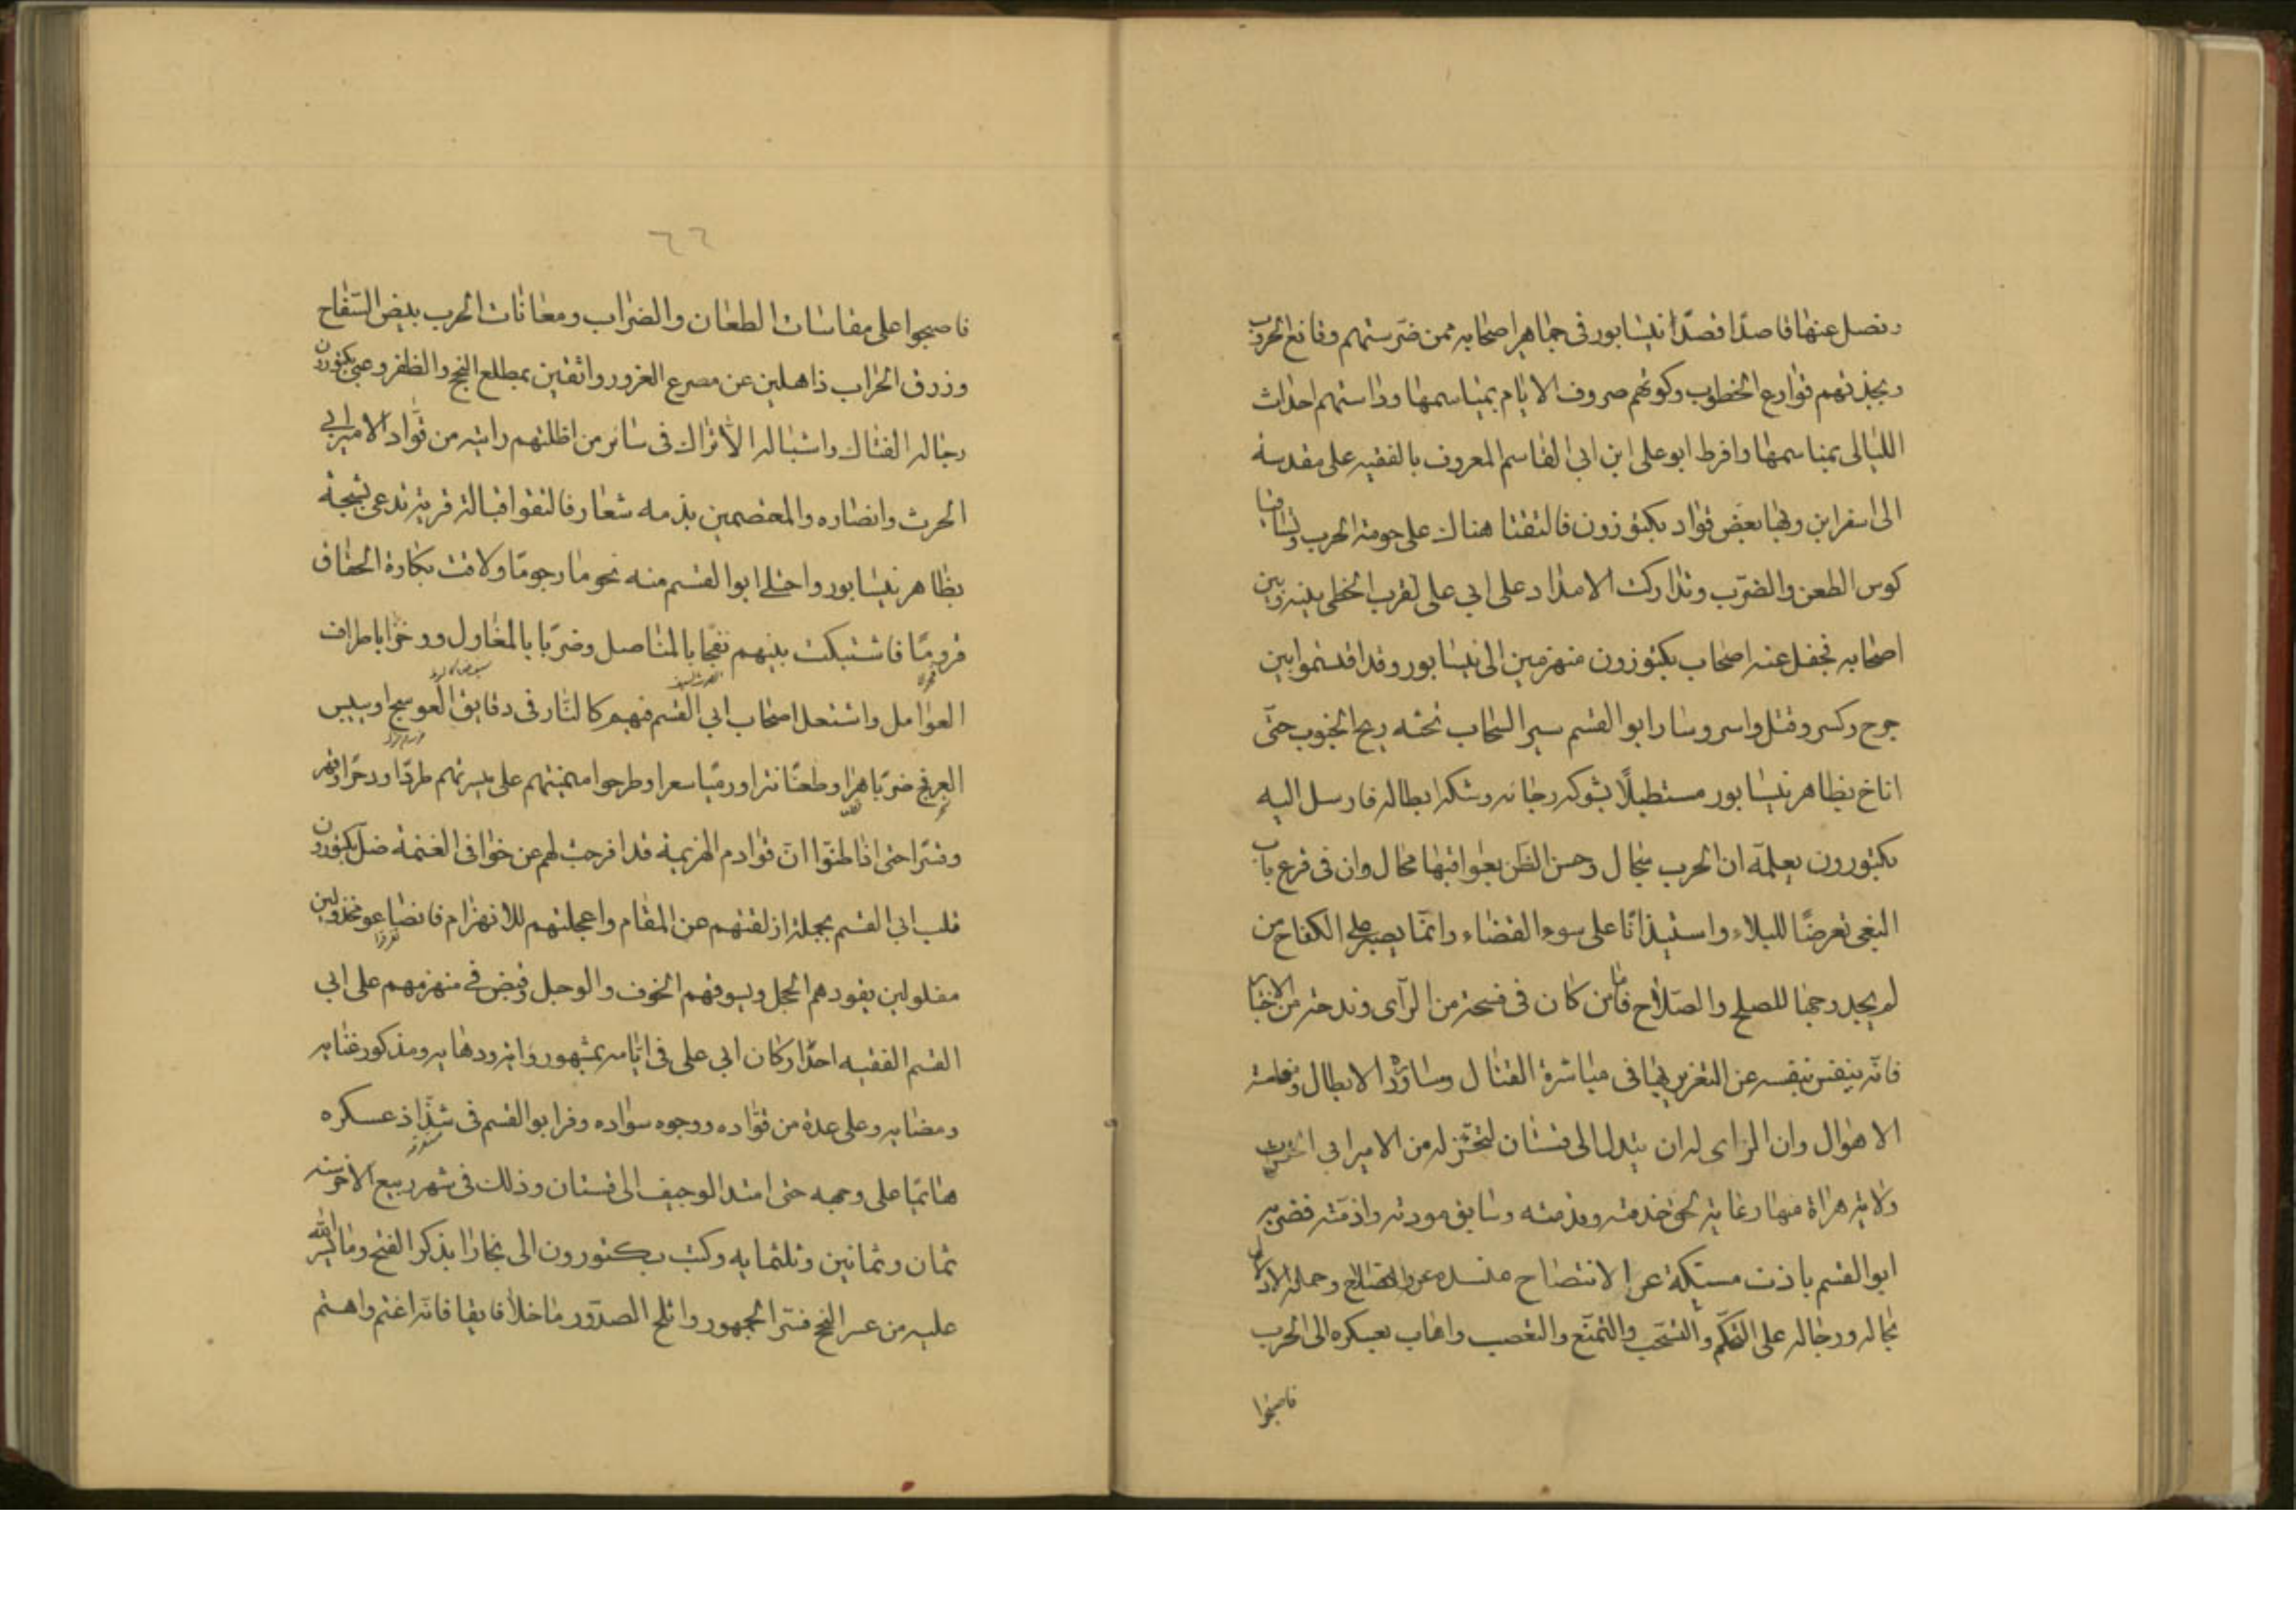 ونصل عنها قاصدا قصد نيسابور في جماهير اصحابه ممن ضرستهم وقائع الحروب
ونجذتهم قوارع الخطوب وكوتهم صروف الايام بمياسمها وداستهم احداث
الليالى بمناسمها وافرط ابو على ابن ابي القاسم المعروف بالفقيه على مقدمة
الى اسفراين وبها بعض قواد بكتوزون فالتقتا هناك على حومة الحرب وتساقيا
كوس الطعن والضرب وتداركت الامداد على ابي على لقرب الخطى بينه وبين
اصحابه فجفل عنه اصحاب بكتوزون منهزمين الى نيسابور وقد اقتسموا بين
جرح وكسر وقتل واسر وسار ابو القسم سير السحاب تحثه ريح الجنوب حتى
اناخ بظاهر نيسابور مستطيلا بشوكة رجاله وشكة ابطاله فارسل اليه
بكتوزون يعلمه ان الحرب سجال وحسن الظن بعواقبها محال وان في قرع باب
البغى تعرضا للبلاء واستيذانا على سوء القضاء وانما يصبر على الكفاح من
لم يجد وجها للصلح والصلاح فاما من كان في فسحة من الرآى وندحة من الاختيار
فانه ينفس بنفسه عن التغرير بها في مباشرة القتال ومساورة الابطال ومقاحمة
الاهوال وان الراى له ان يتدلى الى قهستان لتنجز له من الامير ابي الحرث
ولاية هراة منها رعاية لحق خدمته وقدمته وسابق مودته واذمته فقضى به
ابو القسم باذن مستكة عن الانتصاح منسده عن الصلاح وحمله الادلال
بماله ورجاله على التحكم والتسحب والتمنع والتعصب واهاب بعسكره الى الحرب
فاصبحوا
٦٦
فاصبحوا على مقاسات الطعان والضراب ومعانات الحرب ببيض الصفاح
وزرق الحراب ذاهلين عن مصرع الغرور واثقين بمطلع النجح والظفر وعبى بكتوزون
رجاله الفتاك واشباله الأتراك في سائر من اظلتهم رايته من قواد الامير ابي
الحرث وانصاره والمعتصمين بذمه شعاره فالتقوا قبالة قرية تدعى بشنجة
بظاهر نيسابور واختلى ابو القسم منه نجوما رجوما ولاقت بكارة الحقاق
قروما فاشتبكت بينهم نفحا بالمناصل وضربا بالمغاول ووخزا باطراف
العوامل واشتعل اصحاب ابي القسم فيهم كالنار في دقايق العوسج او يبيس
العرفج ضربا هبرا وطعنا نترا ورميا سعرا وطرحوا ميمنتهم على ميسرتهم طردا ودحرا وقهر
وقسرا حتى اذا ظنوا ان قوادم الهزيمة قد افرجت لهم عن خوافى الغنيمة حمل بكتوزون
قلب ابي القسم بحملة ازلقتهم عن المقام واعجلتهم للانهزام فانصاعو مخذولين
مفلولين يقودهم الخجل ويسوقهم الخوف والوجل وقبض في منهزمهم على ابي
القسم الفقيه احد اركان ابي على في ايامه بمشهور رايه ودهايه ومذكور غنايه
ومضايه وعلى عدة من قواده ووجوه سواده وفر ابو القسم في شذاذ عسكره
هائما على وجهه حتى امتد الوجيف الى قهستان وذلك في شهر ربيع الاخر سنة
ثمان وثمانين وثلثمايه وكتب بكتوزون الى بخارا بذكر الفتح وما يسر الله
عليه من عسر النجح فسر الجمهور واثلج الصدور ما خلا فايقا فانه اغتم واهتم